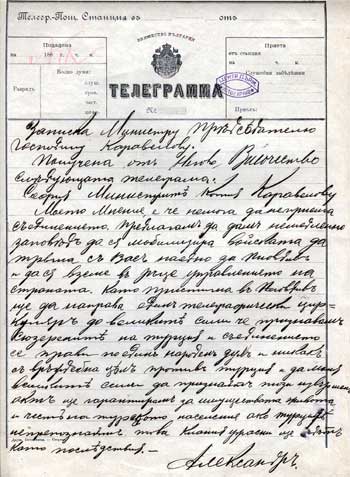 Телегр.-Пощ. Станция въ отъ
КНЯЖЕСТВО БЪЛГАРИЯ
Подадена
188 г.
Приета
отъ станция
Разредъ
Число думи:
Служебни забѣлѣжки
ТЕЛЕГРАММА
№
Приелъ:
Записка Министру Прѣдсѣдателю
Господину Каравелову.
Получена отъ Него Височество
слѣдующата телеграма.
София Министритъ Каравелову
Мое Мнение е че немога да неприема
съединението. Предлагамъ да дамъ немѣдленно
заповѣдь да се мобилизира войската да
тръгна съ Васъ наедно да Пловдивъ
и да се вземе въ ръце управлението на
страната. Като пристигна въ Пловдивъ
ще да направа единъ телеграфически цир-
куляръ до великитѣ сили че признавамъ
Сюзеренитѣ на турция и съединението
се прави по единъ народенъ духъ и никакъ
съ враждебна цѣль противъ турция и да моля
великитѣ сили да признаятъ този
актъ ще гарантирамъ да имуществото живота
и честь на турското население ако турцитѣ
непрепознаятъ това клания ще бѫдѫтъ
като послѣдствия.
Александъръ.